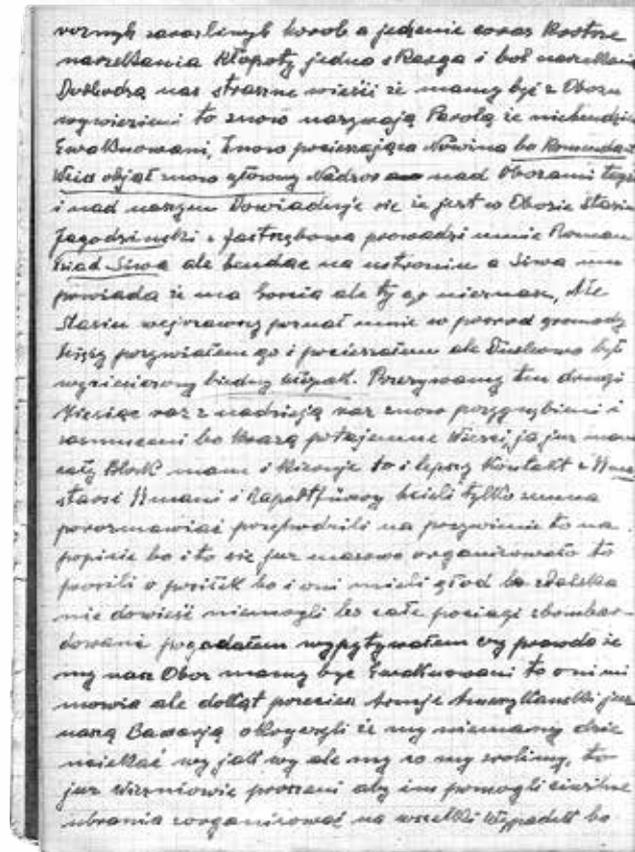 rożnych zaraźliwych horob a jedzenie coraz Krotsze
narzekania Kłopoty jedna skarga i bol narzekania
Dochodzą nas straszne wieści że mamy być z Obozu
wywiezieni to znow nazywają Parolą że niebendzie
Ewakuowani, Znowu pocieszająca Nowina bo Komendant
Weis objął znowu głowny Nadzor nad Obozami tego
i nad naszym Dowiaduje sie że jest w Obozie Stasiu
Jagodzinski z Jastrzębowa prowadzi mnie Roman
Siwa ale bendąc na ustroniu a Siwa mu
powiada że ma Gonia ale ty go nieznasz, Ale
Stasiu wejrzawszy poznał mnie w posrod gromady
Księży przywitałem go i pocieszałem ale Duchowo był
wycieńczony biedny chłopak. Przezywamy ten drugi
Miesiąc raz z nadzieją raz znow przygnębieni i
zasmuceni bo krążą potajemne Wiesci, ja już mam
cały Block mam i kieruje to i lepszy Kontakt z
starsi SSmani i Rapoltfürery kcieli tylko zemna
porozmawiać przychodzili na pozywienie to na
popicie bo i to sie już masowo organizowało to
prosili o posiłek bo i oni mieli głod bo zdalska
nie dowieść niemogli bo całe pociągi zbombar-
dowane pogadałem wypytywałem czy prawda że
my nasz Oboz mamy być Ewakuowani to oni mi
mowia ale dokąt przecież Armje Amerykanski już
naszą Bawarją okrązyli że my niemamy dzie
uciekać wy jak wy ale my co my zrobimy, to
już Więzniowie proszeni aby im pomogli ciwilne
ubrania zorganizować na wszelki Wypadek bo